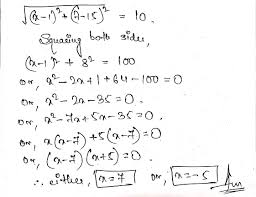 √(x-1)² + (7-15)² = 10.
Squaring both sides,
(x-1)² + 8² = 100
or, x² - 2x + 1 + 64 - 100 = 0
or, x² - 2x - 35 = 0.
or, x² - 7x + 5x - 35 = 0.
or, x(x-7) + 5(x-7) = 0.
or, (x-7) (x+5) = 0.
∴ either, x = 7 or, x = -5